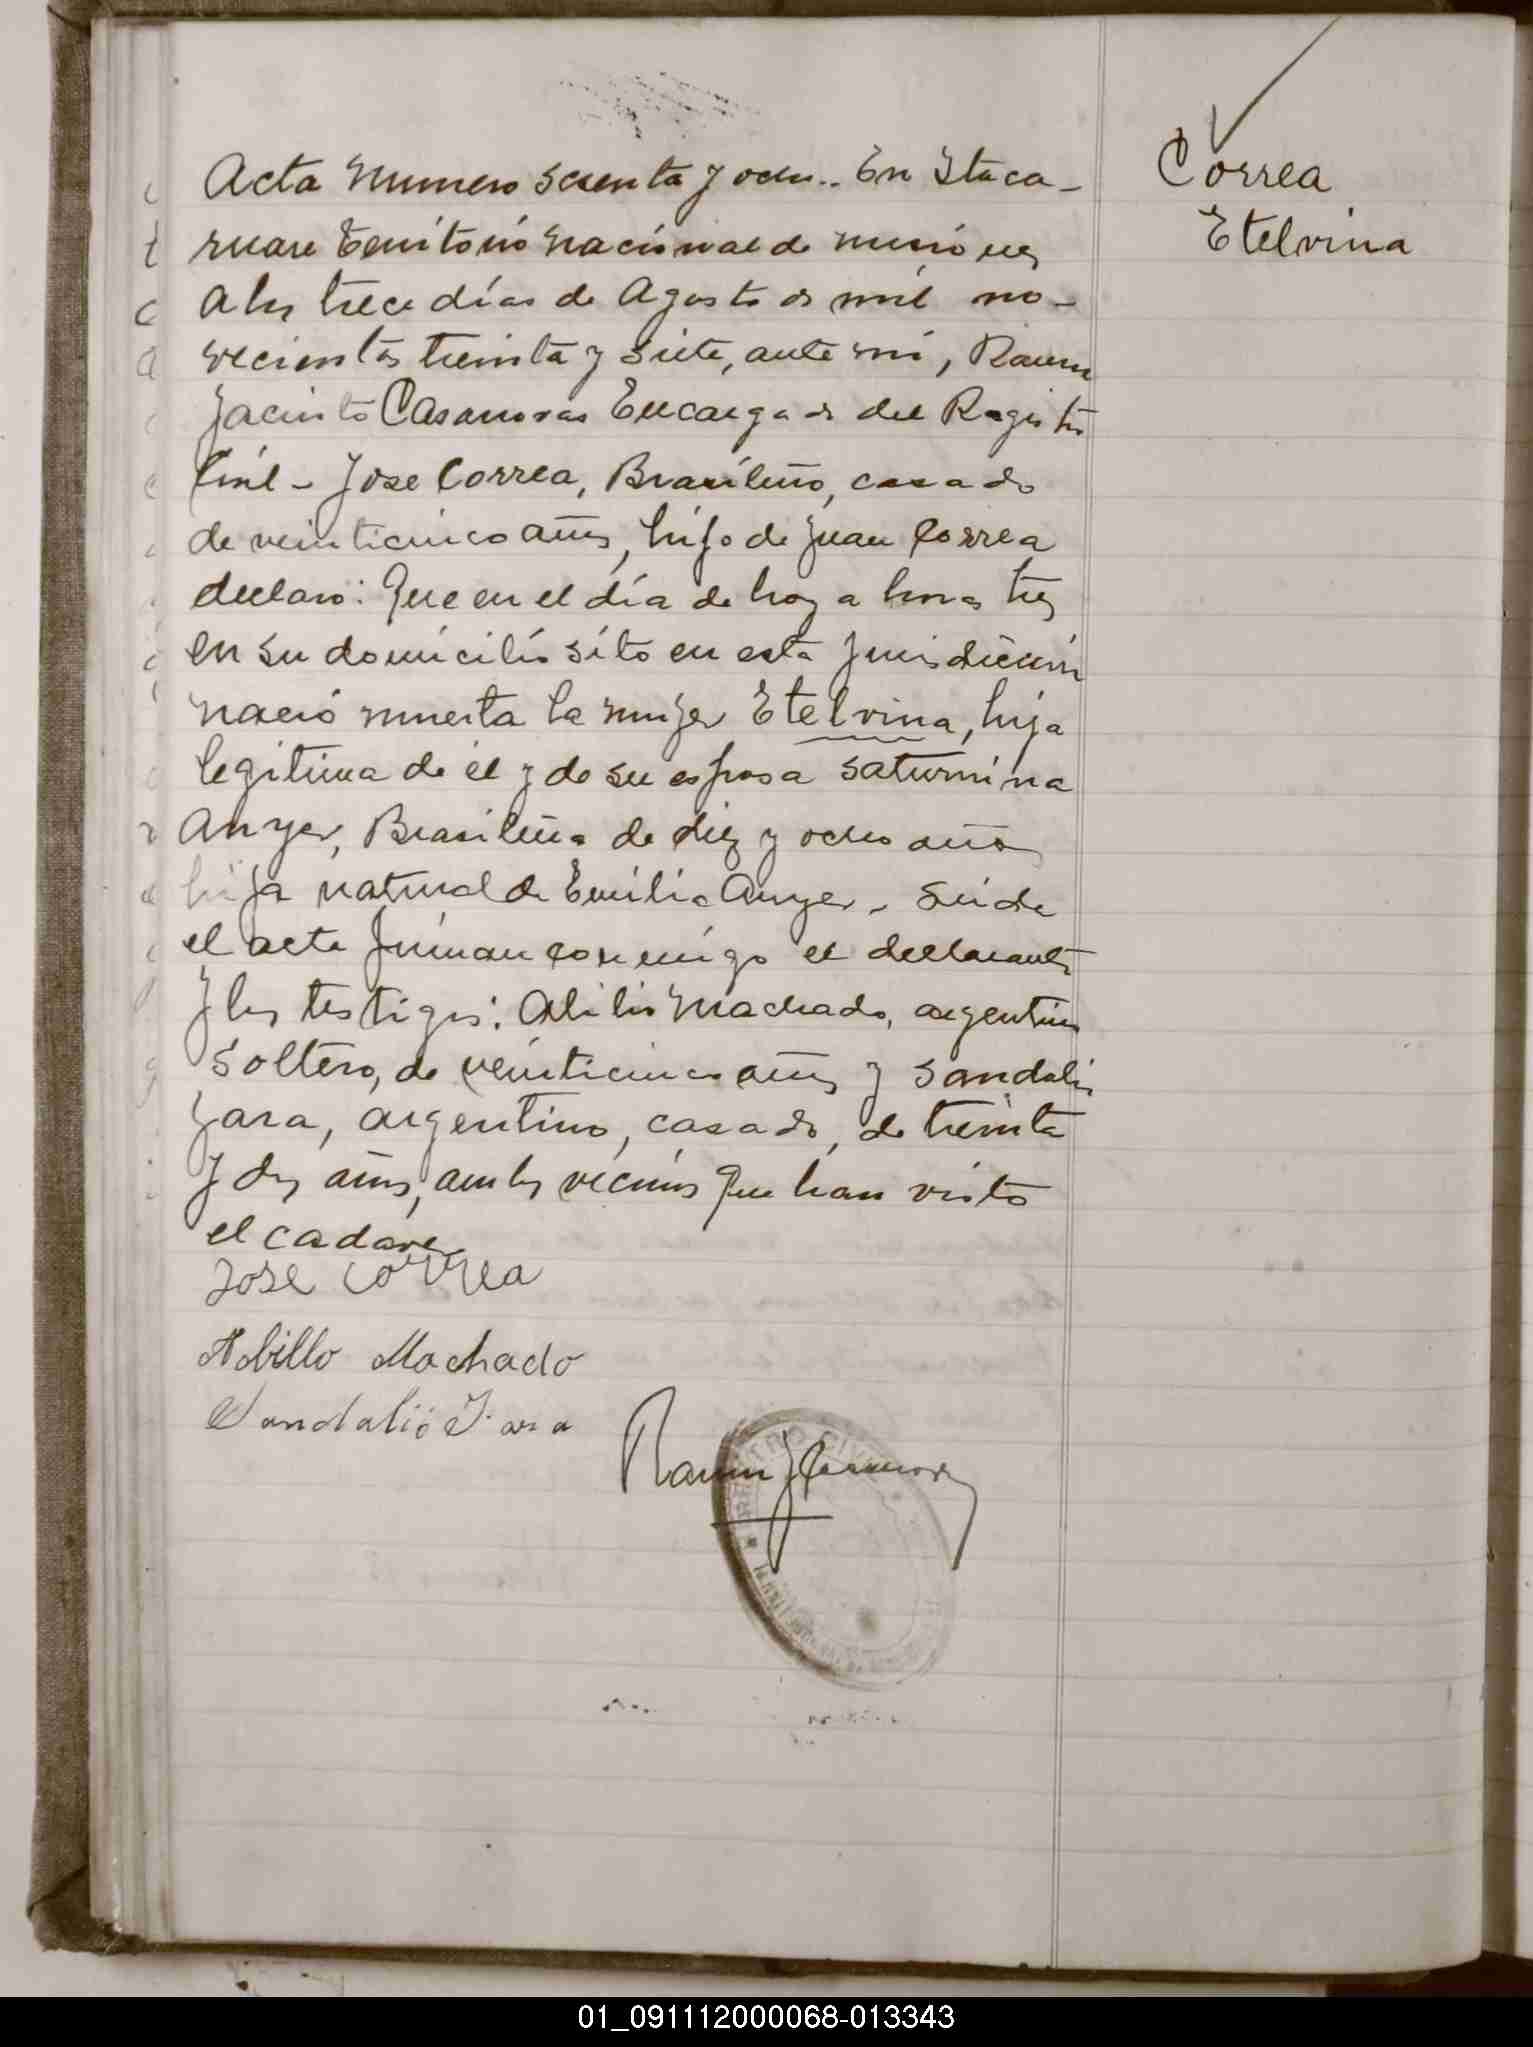 Correa
Etelvina
Acta numero sesenta y ocho.. En Itaca-
ruare Territorio Nacional de Misiones
a los trece días de Agosto de mil no-
vecientos treinta y siete, ante mi, Ramon
Jacinto Casanovas Encargado del Registro
Civil - Jose Correa, Brasileño, casado
de veinticinco años, hijo de Juan Correa
declaro: Que en el día de hoy a horas tres
en su domicilio sito en esta Jurisdicción
nació muerta la mujer Etelvina, hija
legitima de él y de su esposa Saturnina
Anyer, Brasileña de diez y ocho años
hija natural de Emilia Anyer. Leida
el acta firman conmigo el declarante
y los testigos: Abilio Machado, argentino
soltero, de veinticinco años y Sandalio
Jara, argentino, casado, de treinta
y dos años, ambos vecinos que han visto
el cadaver
Jose Correa
Abillo Machado
Sandalio Jara
Ramon J Casanovas
REGISTRO CIVIL
01_091112000068-013343